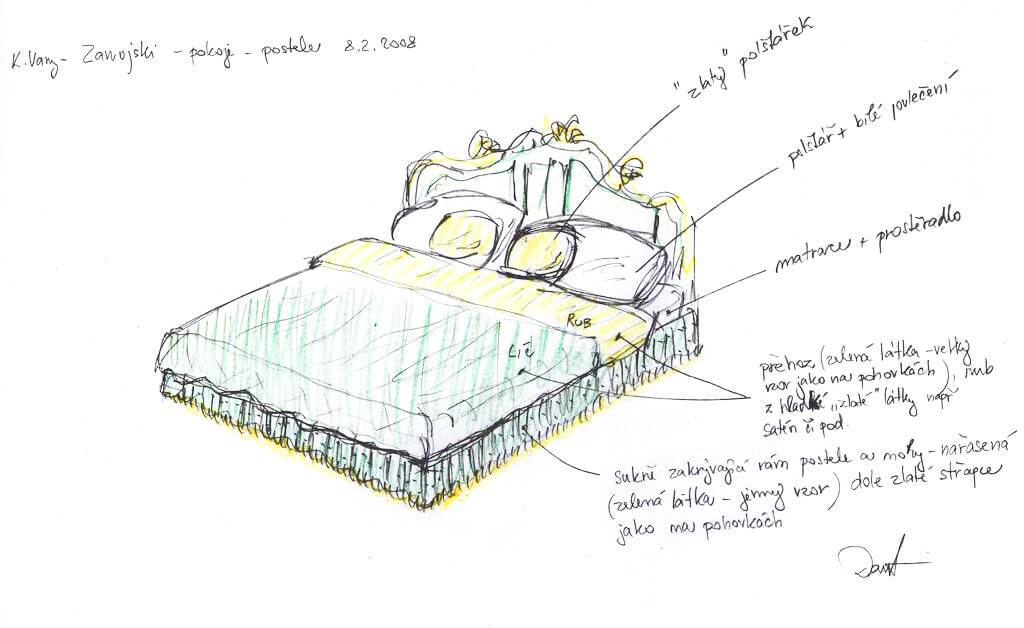 K. Vary - Zawojski - pokoje - postele 8.2.2008
"zlatý" polštářek
polštář + bílé povlečení
matrace + prostěradlo
RUB
LÍC
přehoz (zelená látka - velký
vzor jako na pohovkách), rub
z hladké "zlaté" látky např
satén či pod.
sukně zakrývající rám postele a nohy - nařasená
(zelená látka - jemný vzor) dole zlaté střapce
jako na pohovkách